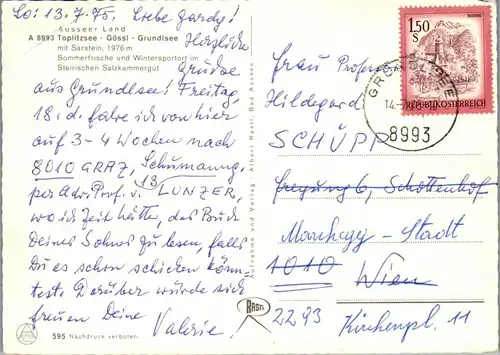 So: 13.7.75. Liebe Gardy!
Ausseer Land
A 8993 Toplitzsee - Gössl - Grundlsee
mit Sarstein, 1976 m
Sommerfrische und Wintersportort im
Steirischen Salzkammergut
Herzliche
Grüsse
aus Grundlsee! Freitag,
18. d. fahre ich von hier
auf 3-4 Wochen nach
8010 GRAZ, Schumanng.
13
per Adr. Prof. v. LUNZER,
wo ich Zeit hätte, das Buch
Deines Sohnes zu lesen, falls
Du es schon schicken könn
test. Darüber würde sich
freuen Deine
Valerie!
595 Nachdruck verboten.
Aufnahme und Verlag: Albert Rastl, Bad Aussee
RASTL
1.50
S
REPUBLIK ÖSTERREICH
GRUNDLSEE
14.-7.
8993
Frau Profess
Hildegard
SCHÜPP
Fregung 6, Schottenhof
Marchegg-Stadt
1010 Wien
2293
Kirchenpl. 11